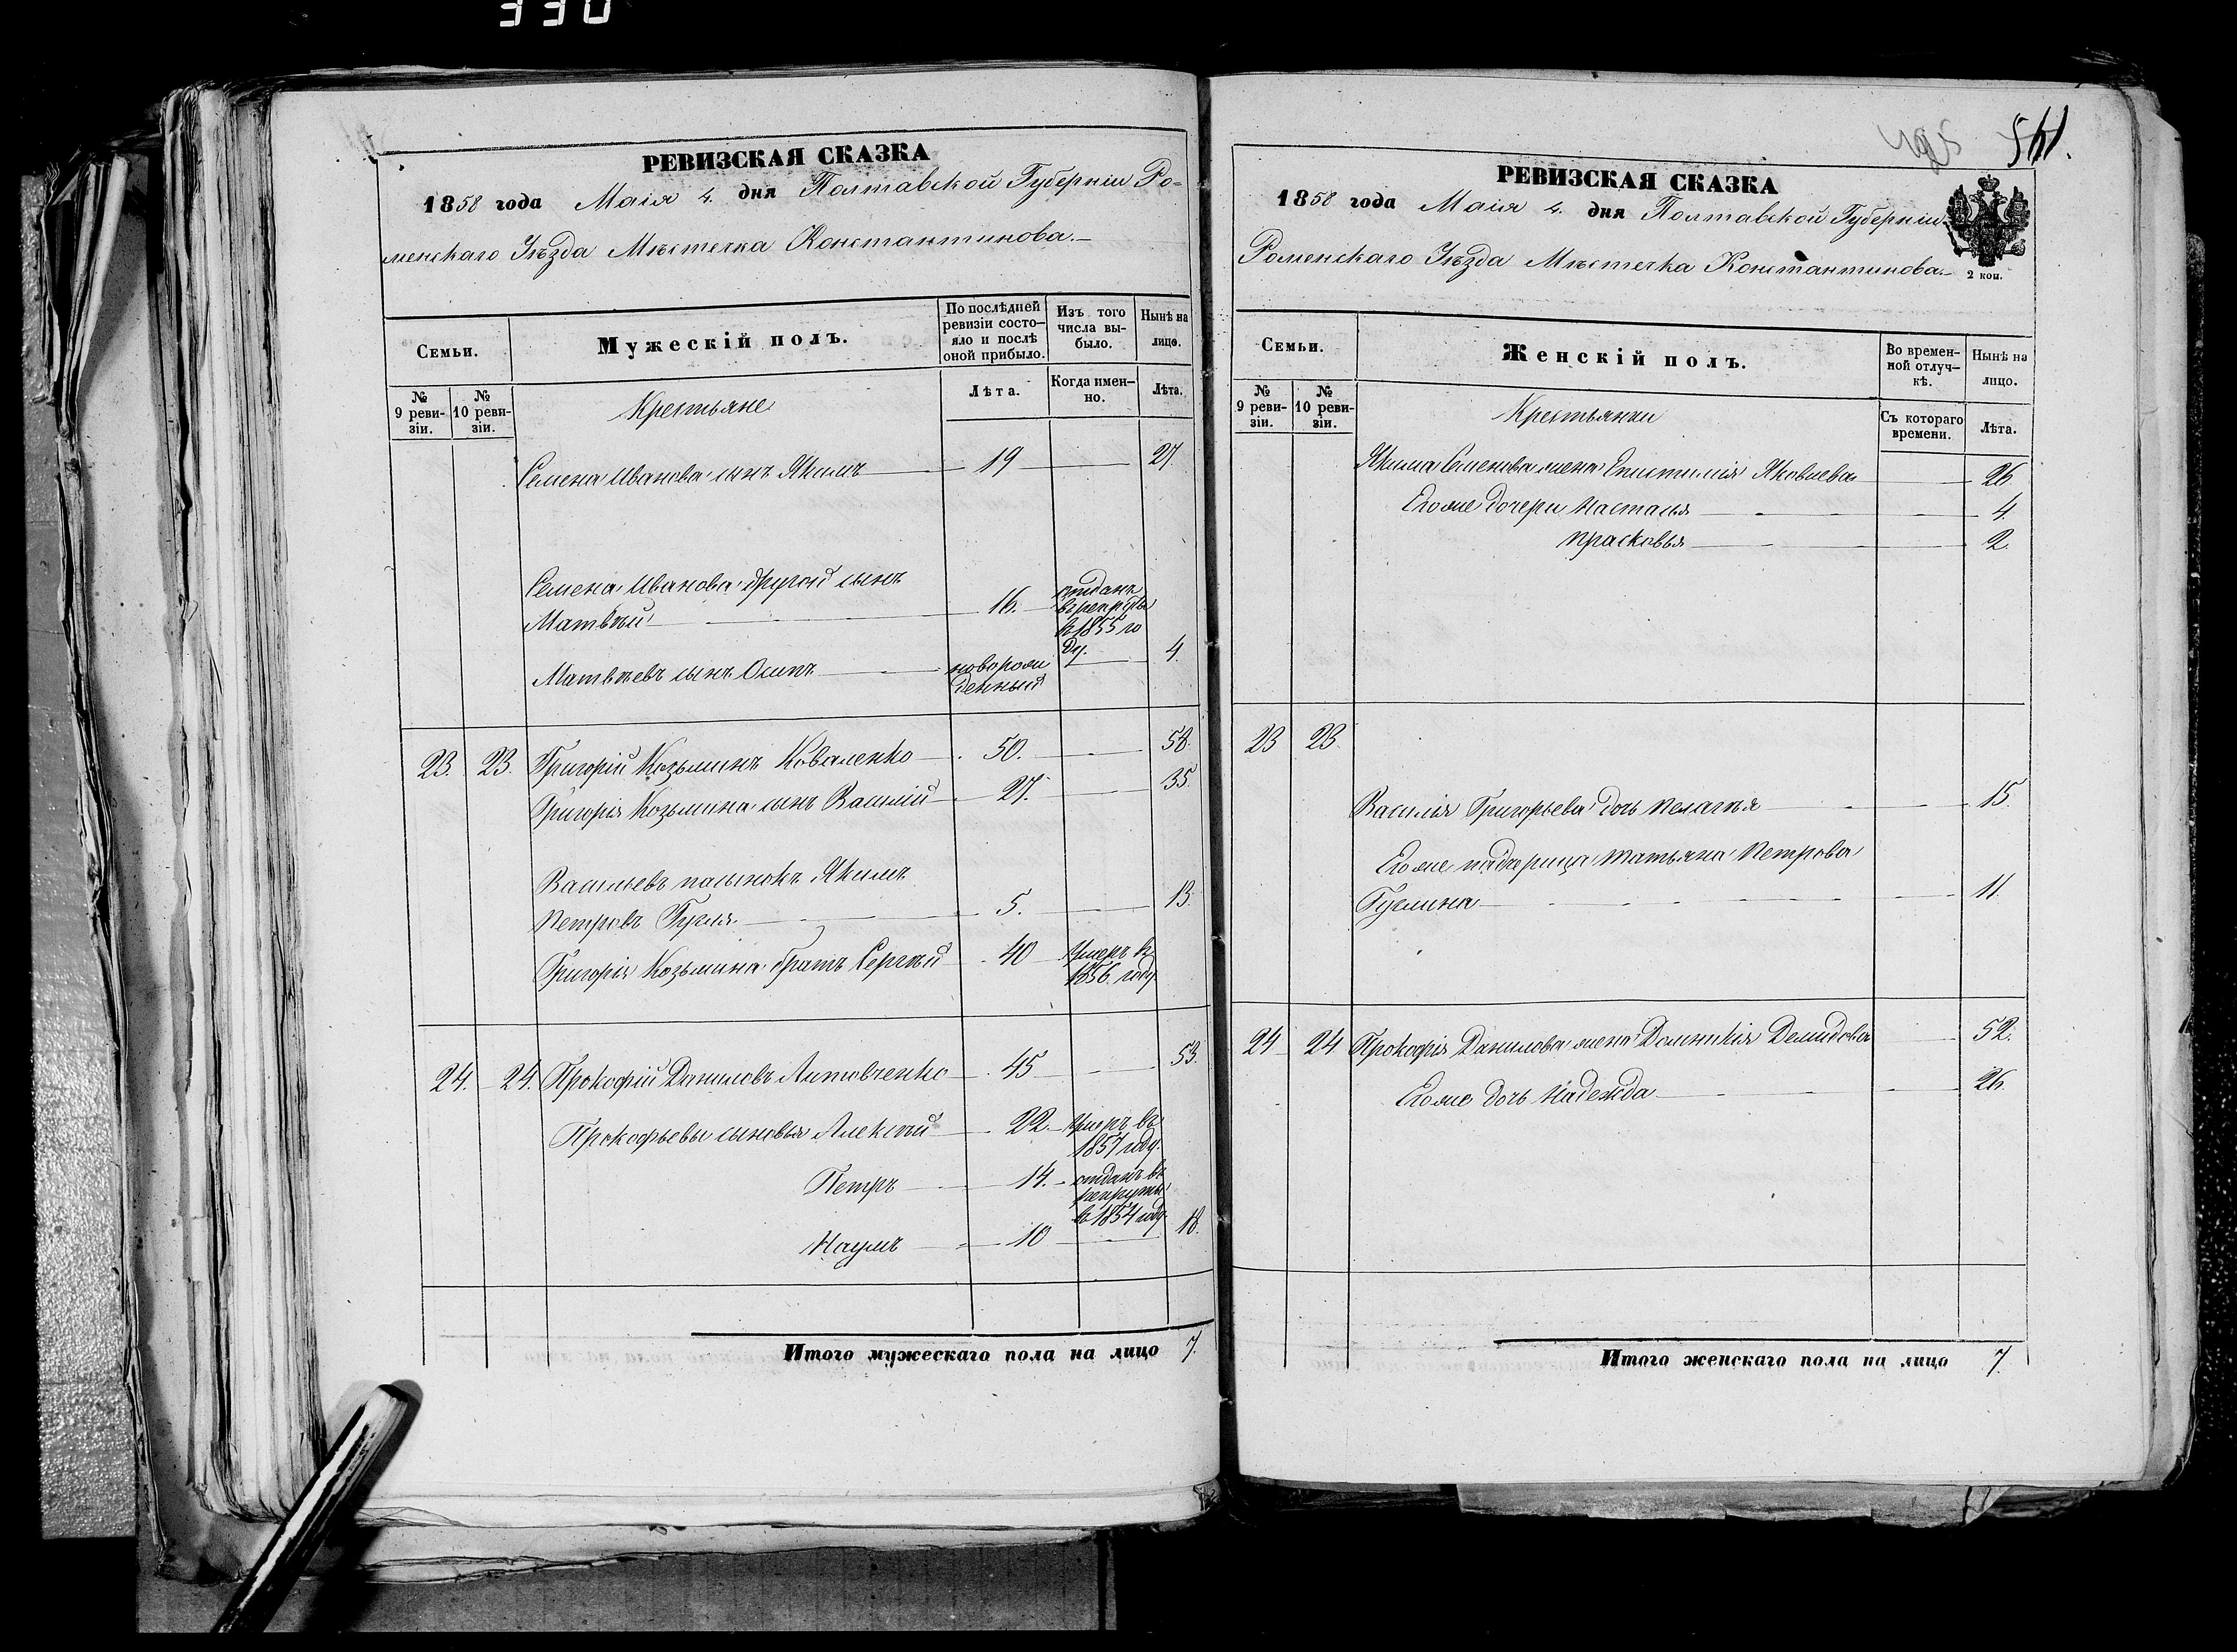 330
РЕВИЗСКАЯ СКАЗКА
1858 года Маія 4. дня Полтавской Губерніи Ро-
менскаго Уѣзда Мѣстечка Константинова.
Семьи.
Мужескій полъ.
По послѣдней ревизіи состо-
яло и послѣ оной прибыло.
Изъ того числа вы-
было.
Нынѣ на лицо.
№ 9 реви-
зіи.
№ 10 реви-
зіи.
Крестьяне
Лѣта.
Когда имен-
но.
Лѣта.
Семена Иванова сынъ Якимъ 19 27
Семена Иванова другой сынъ
Матвѣй 16. отданъ
в рекруты
в 1855 го
ду.
Матвѣевъ сынъ Осипъ новорож 4.
денный
23. 23. Григорій Козьминъ Коваленко 50. 58.
Григорія Козьмина сынъ Василій 27. 35.
Васильевъ пасынокъ Якимъ
Петровъ Гугля 5. 13.
Григорія Козьмина братъ Сергѣй 40 Умеръ в
1856. году
24. 24. Прокофій Даниловъ Литовченко 45 53.
Прокофьевы сыновья Алексѣй 22. Умеръ въ
1857 году.
Петръ 14. отданъ въ
рекруты
в 1854 году
Наумъ 10 18.
Итого мужескаго пола на лицо 7.
541.
РЕВИЗСКАЯ СКАЗКА
1858 года Маія 4. дня Полтавской Губерніи
Роменскаго Уѣзда Мѣстечка Константинова.
2 коп.
Семьи.
Женскій полъ.
Во времен-
ной отлуч-
кѣ.
Нынѣ на лицо.
№ 9 реви-
зіи.
№ 10 реви-
зіи.
Крестьянки
Съ котораго времени.
Лѣта.
Якима Семенова жена Епистимія Яковлева 26
Его же дочери Настасья 4.
Прасковья 2.
23 23.
Василія Григорьева дочь Пелагѣя 15.
Его же падчерица Татьяна Петрова
11.
24 24 Прокофія Данилова жена Домникія Демидова 52.
Его же дочь Надежда 26.
Итого женскаго пола на лицо 7.